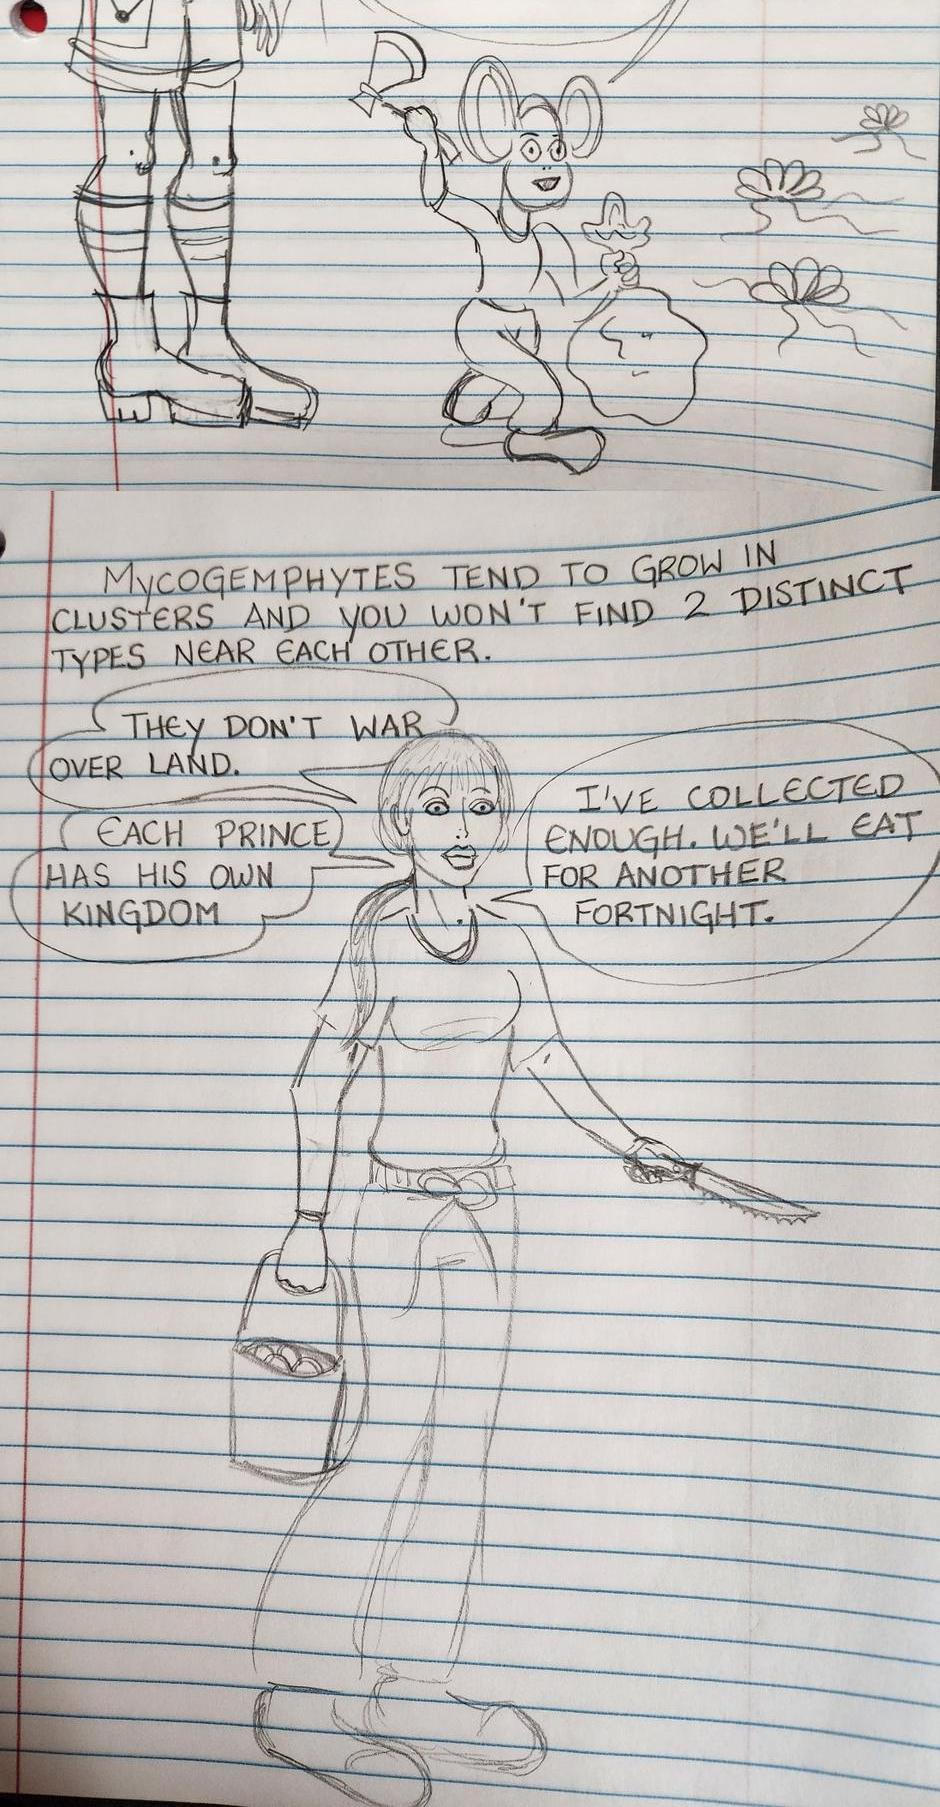 MYCOGEMPHYTES TEND TO GROW IN
CLUSTERS AND YOU WON'T FIND 2 DISTINCT
TYPES NEAR EACH OTHER.
THEY DON'T WAR
OVER LAND.
EACH PRINCE
HAS HIS OWN
KINGDOM
I'VE COLLECTED
ENOUGH. WE'LL EAT
FOR ANOTHER
FORTNIGHT.